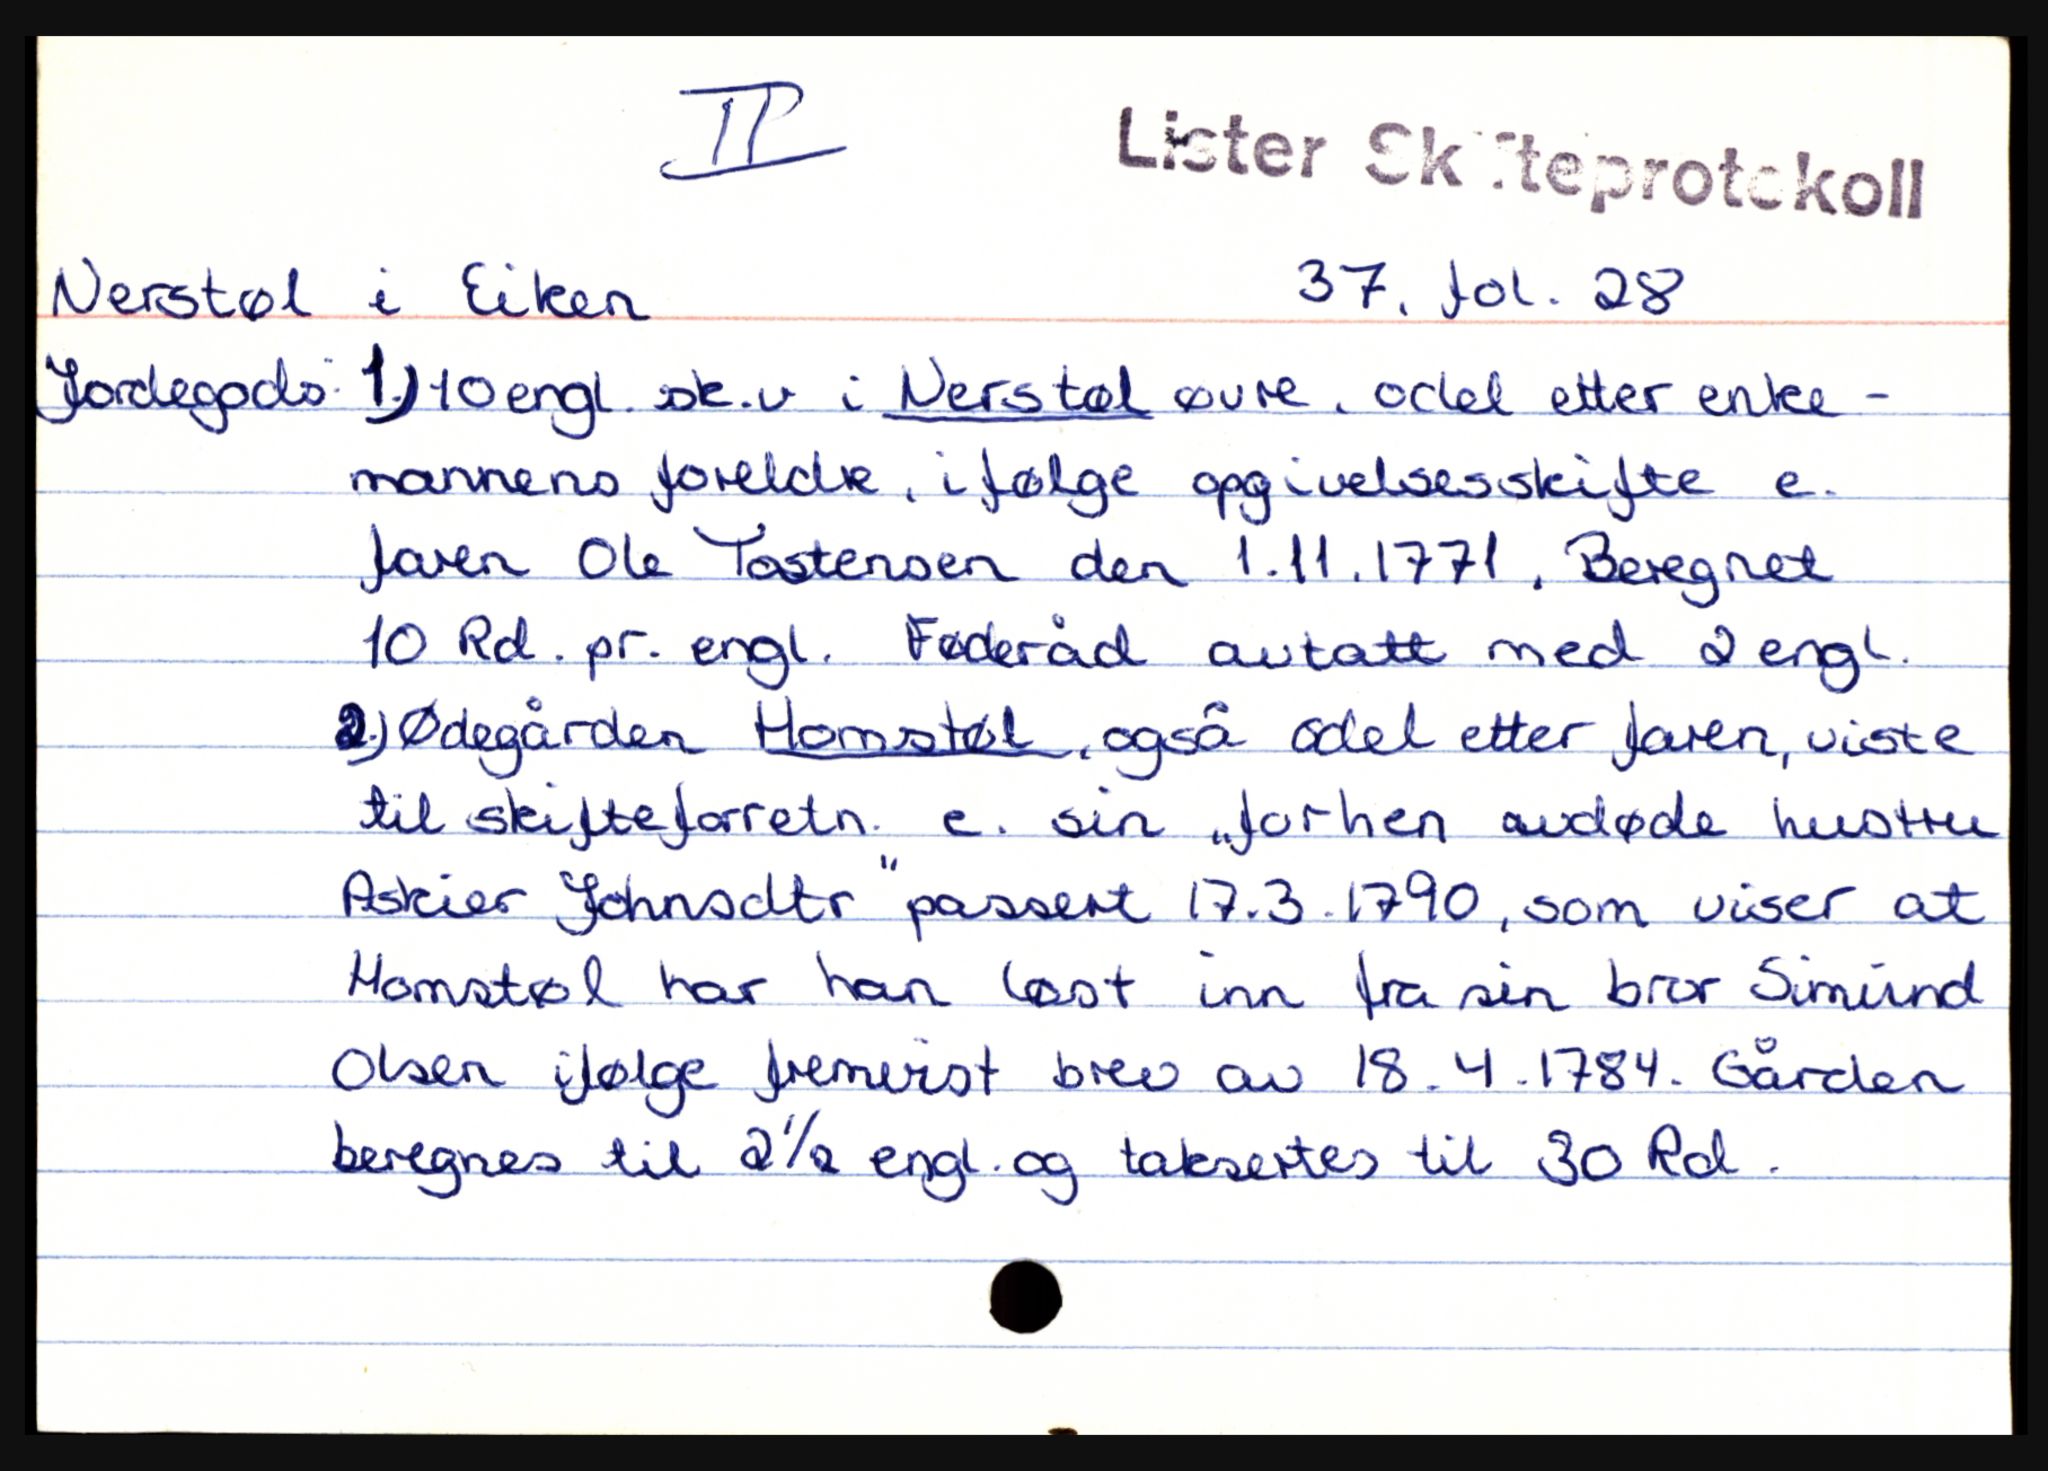 II
Lister Skifteprotokoll
Nerstøl i Eiken 37, fol. 28
Jordegods: 1.) 10 engl. sk.v i Nerstøl øvre, odel etter enke-
mannens foreldre, ifølge opgivelsesskifte e.
faren Ole Tostensen den 1.11.1771. Beregnet
10 Rd. pr. engl. Føderåd avtatt med 2 engl.
2.) Ødegården Homstøl, også odel etter faren, viste
til skifteforretn. e. sin „forhen avdøde hustru
Askier Johnsdtr" passert 17.3.1790, som viser at
Homstøl har han løst inn fra sin bror Simund
Olsen ifølge fremvist brev av 18.4.1784. Gården
beregnes til 2 1/2 engl. og taksertes til 30 Rd.